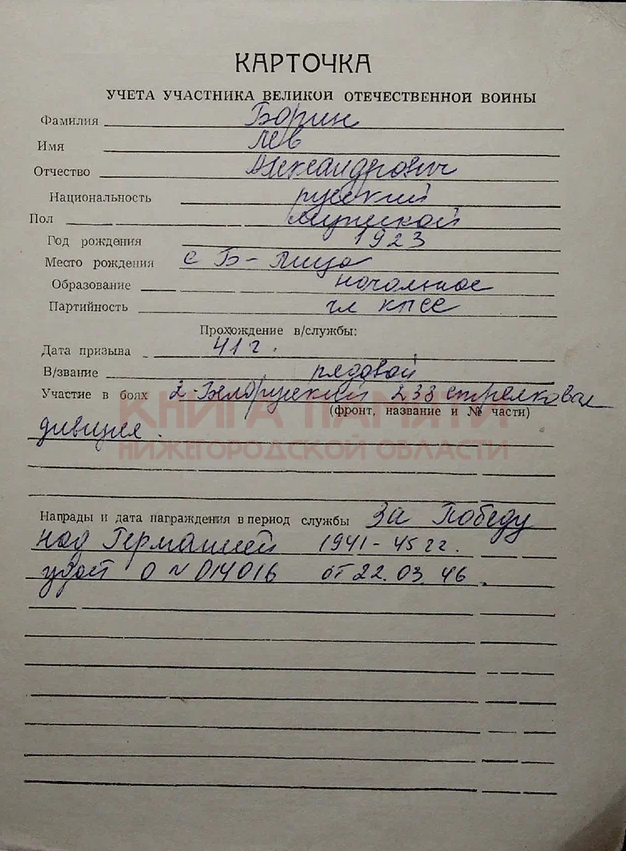 КАРТОЧКА
УЧЕТА УЧАСТНИКА ВЕЛИКОЙ ОТЕЧЕСТВЕННОЙ ВОЙНЫ
Фамилия Борин
Имя Лев
Отчество Александрович
Национальность русский
Пол мужской
Год рождения 1923
Место рождения с Б-Пица
Образование начальное
Партийность чл КПСС
Прохождение в/службы:
Дата призыва 41 г.
В/звание рядовой
Участие в боях 2-Белоруский 238 стрелковая
(фронт, название и № части)
дивизия.
КНИГА ПАМЯТИ
НИЖЕГОРОДСКОЙ ОБЛАСТИ
Награды и дата награждения в период службы За Победу
над Германией 1941-45 гг.
удост О № 014016 от 22.03.46.